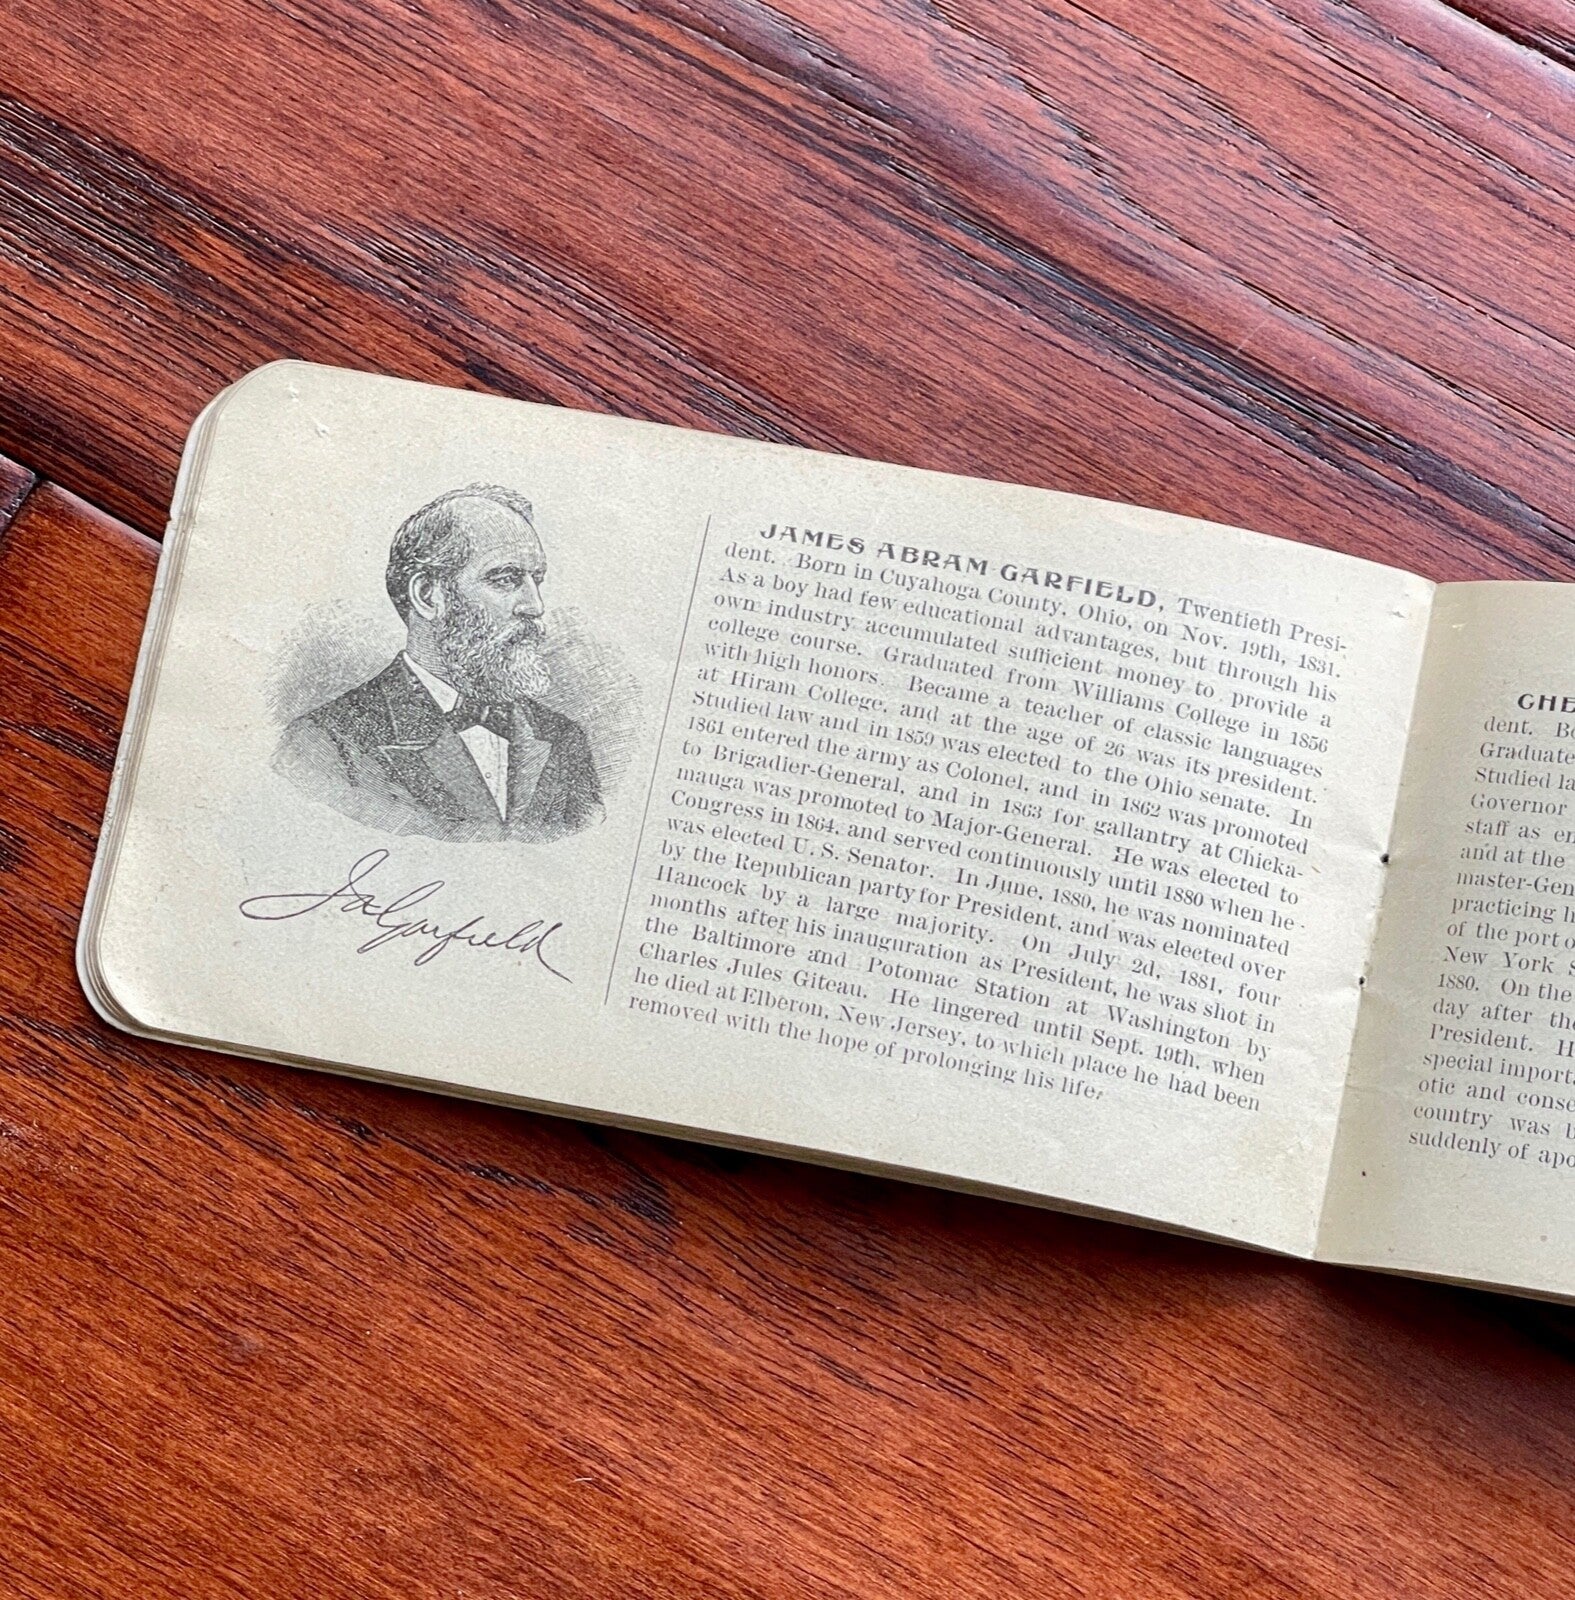 JAMES ABRAM GARFIELD, Twentieth Presi-
dent. Born in Cuyahoga County, Ohio, on Nov. 19th, 1831.
As a boy had few educational advantages, but through his
own industry accumulated sufficient money to provide a
college course. Graduated from Williams College in 1856
with high honors. Became a teacher of classic languages
at Hiram College, and at the age of 26 was its president.
Studied law and in 1859 was elected to the Ohio senate. In
1861 entered the army as Colonel, and in 1862 was promoted
to Brigadier-General, and in 1863 for gallantry at Chicka-
mauga was promoted to Major-General. He was elected to
Congress in 1864, and served continuously until 1880 when he
was elected U. S. Senator. In June, 1880, he was nominated
by the Republican party for President, and was elected over
Hancock by a large majority. On July 2d, 1881, four
months after his inauguration as President, he was shot in
the Baltimore and Potomac Station at Washington by
Charles Jules Giteau. He lingered until Sept. 19th, when
he died at Elberon, New Jersey, to which place he had been
removed with the hope of prolonging his life.
JAGarfield
CHE
dent. Bo
Graduate
Studied la
Governor
staff as en
and at the
master-Gen
practicing l
of the port o
New York S
1880. On the
day after the
President. H
special importa
otic and conse
country was b
suddenly of apo